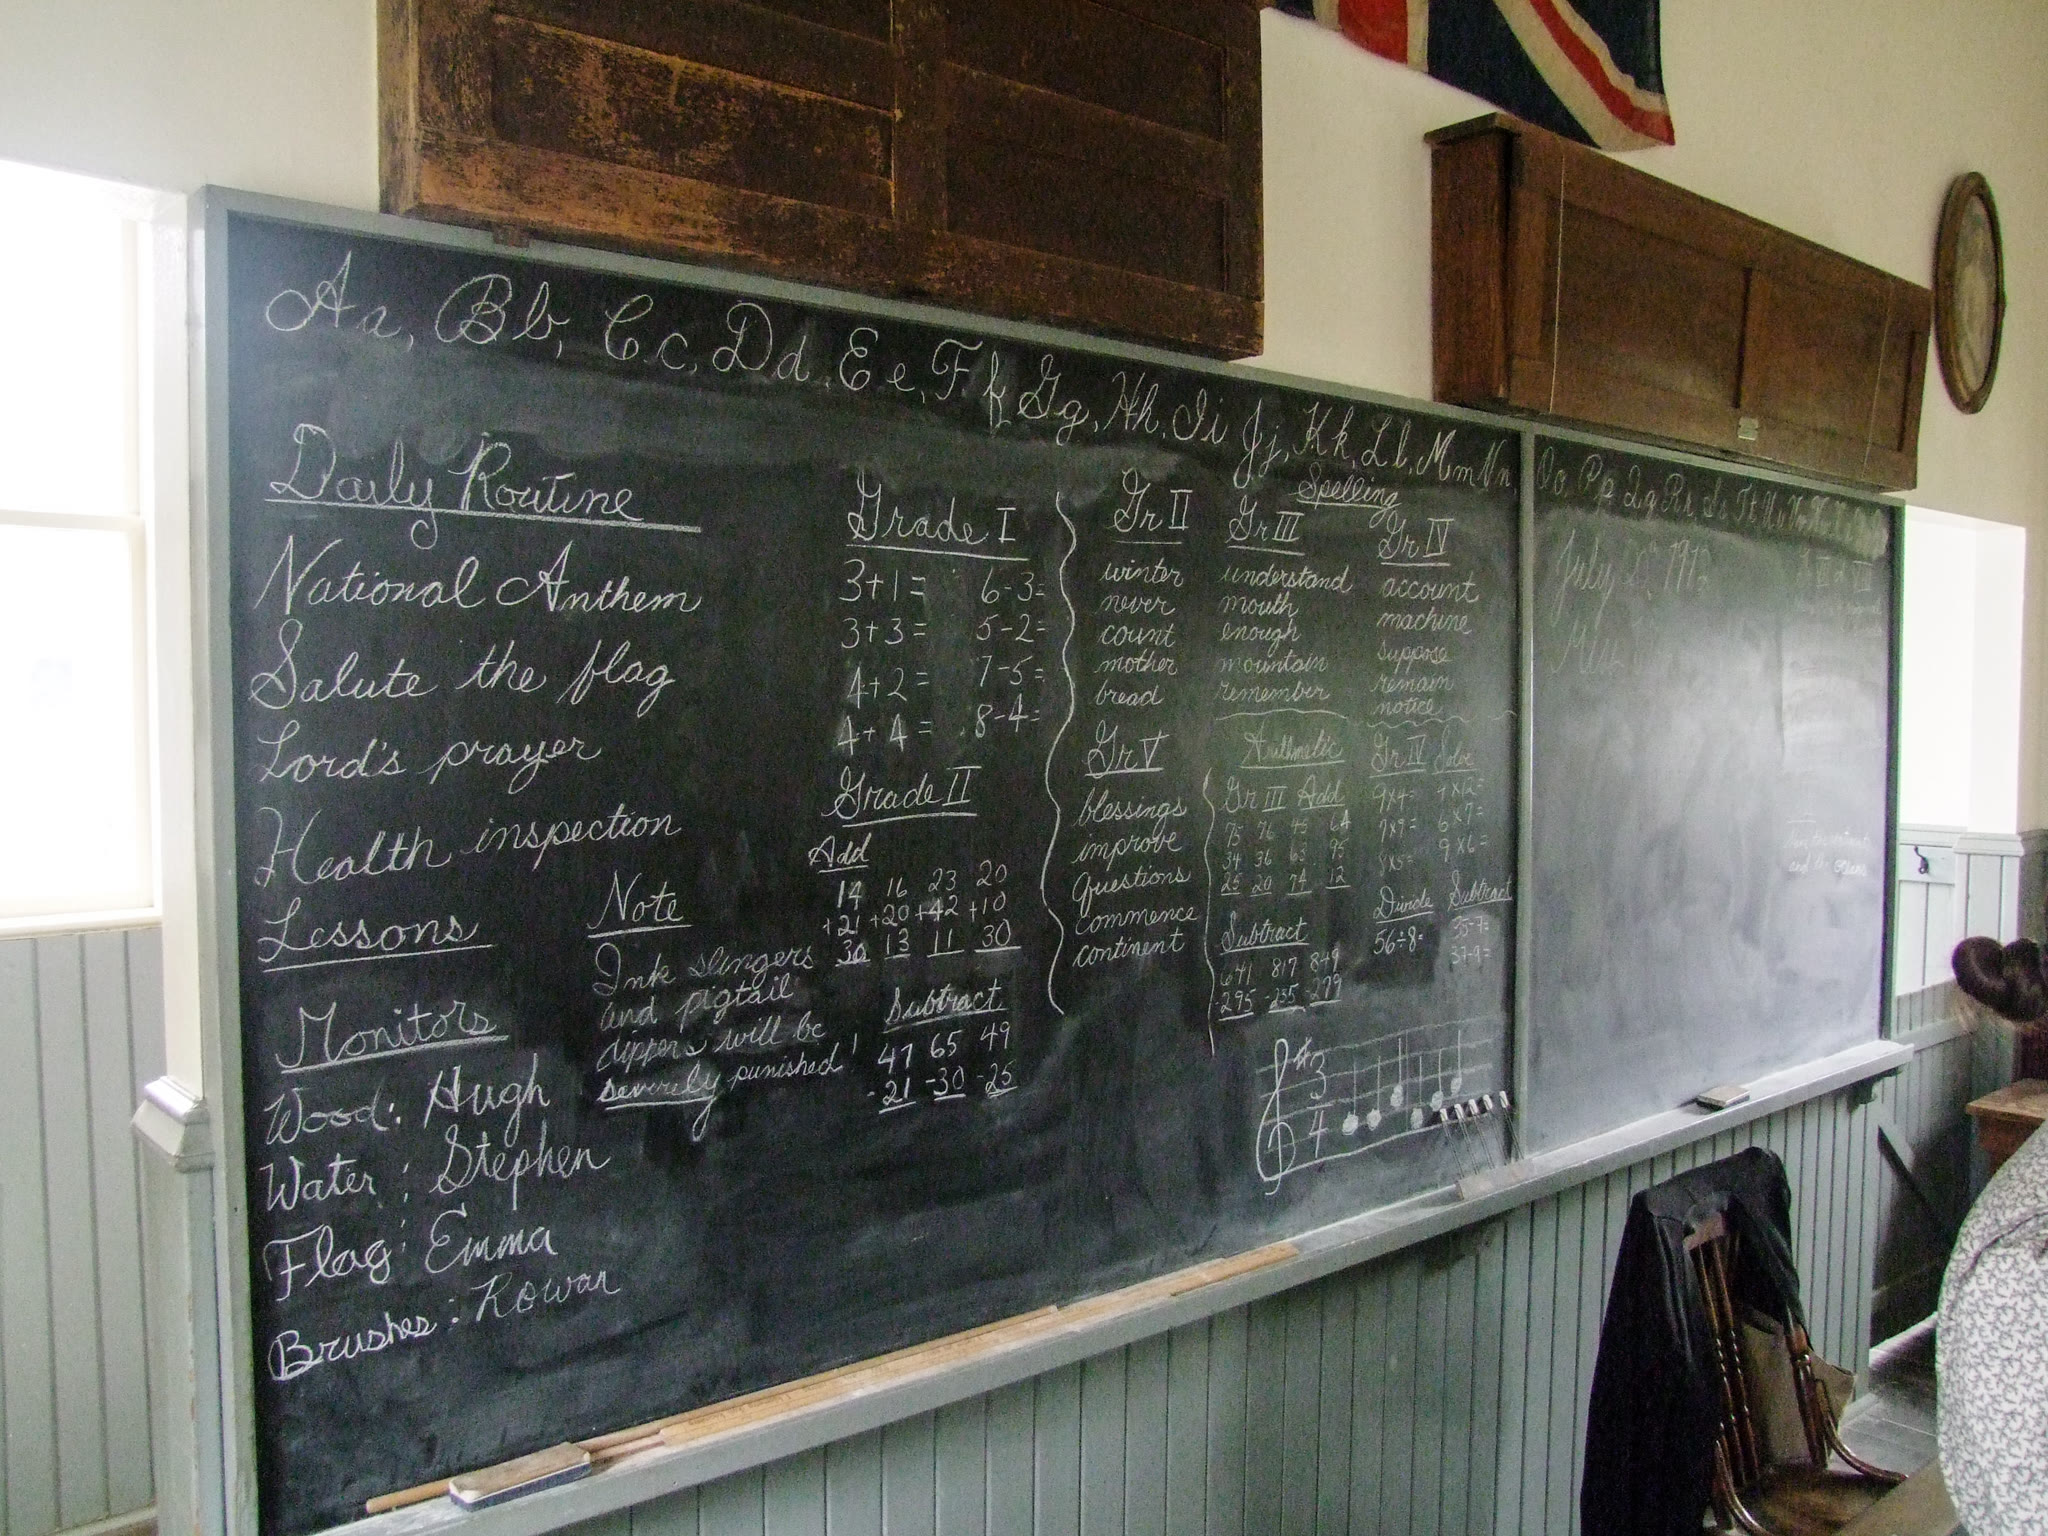 Aa, Bb, Cc, Dd, Ee, Ff, Gg, Hh, Ii, Jj, Kk, Ll, Mm Nn,
Oo, Pp, Qq, Rr, Ss, Tt, Uu
Daily Routine
National Anthem
Salute the flag
Lord's prayer
Health inspection
Lessons
Monitors
Wood: Hugh
Water: Stephen
Flag: Emma
Brushes: Rowan
Note
Ink slingers
and pigtail
dippers will be
severely punished!
Grade I
3+1= 6-3=
3+3= 5-2=
4+2= 7-5=
4+4= 8-4=
Grade II
Add
14 16 23 20
+21 +20 +42 +10
30 13 11 30
Subtract
47 65 49
-21 -30 -25
Spelling
Gr II
winter
never
count
mother
bread
Gr III
understand
mouth
enough
mountain
remember
Gr IV
account
machine
suppose
remain
notice
Gr V
blessings
improve
Questions
commence
continent
Arithmetic
Gr III Add
75 76 45 64
34 36 63 95
25 20 74 12
Subtract
641 817 849
-295 -235 -279
Gr IV Solve
9x4= 7x12=
7x9= 6x7=
8x5= 9x6=
Divide
56÷8=
Subtract
35-7=
37-9=
3
4
July
and the